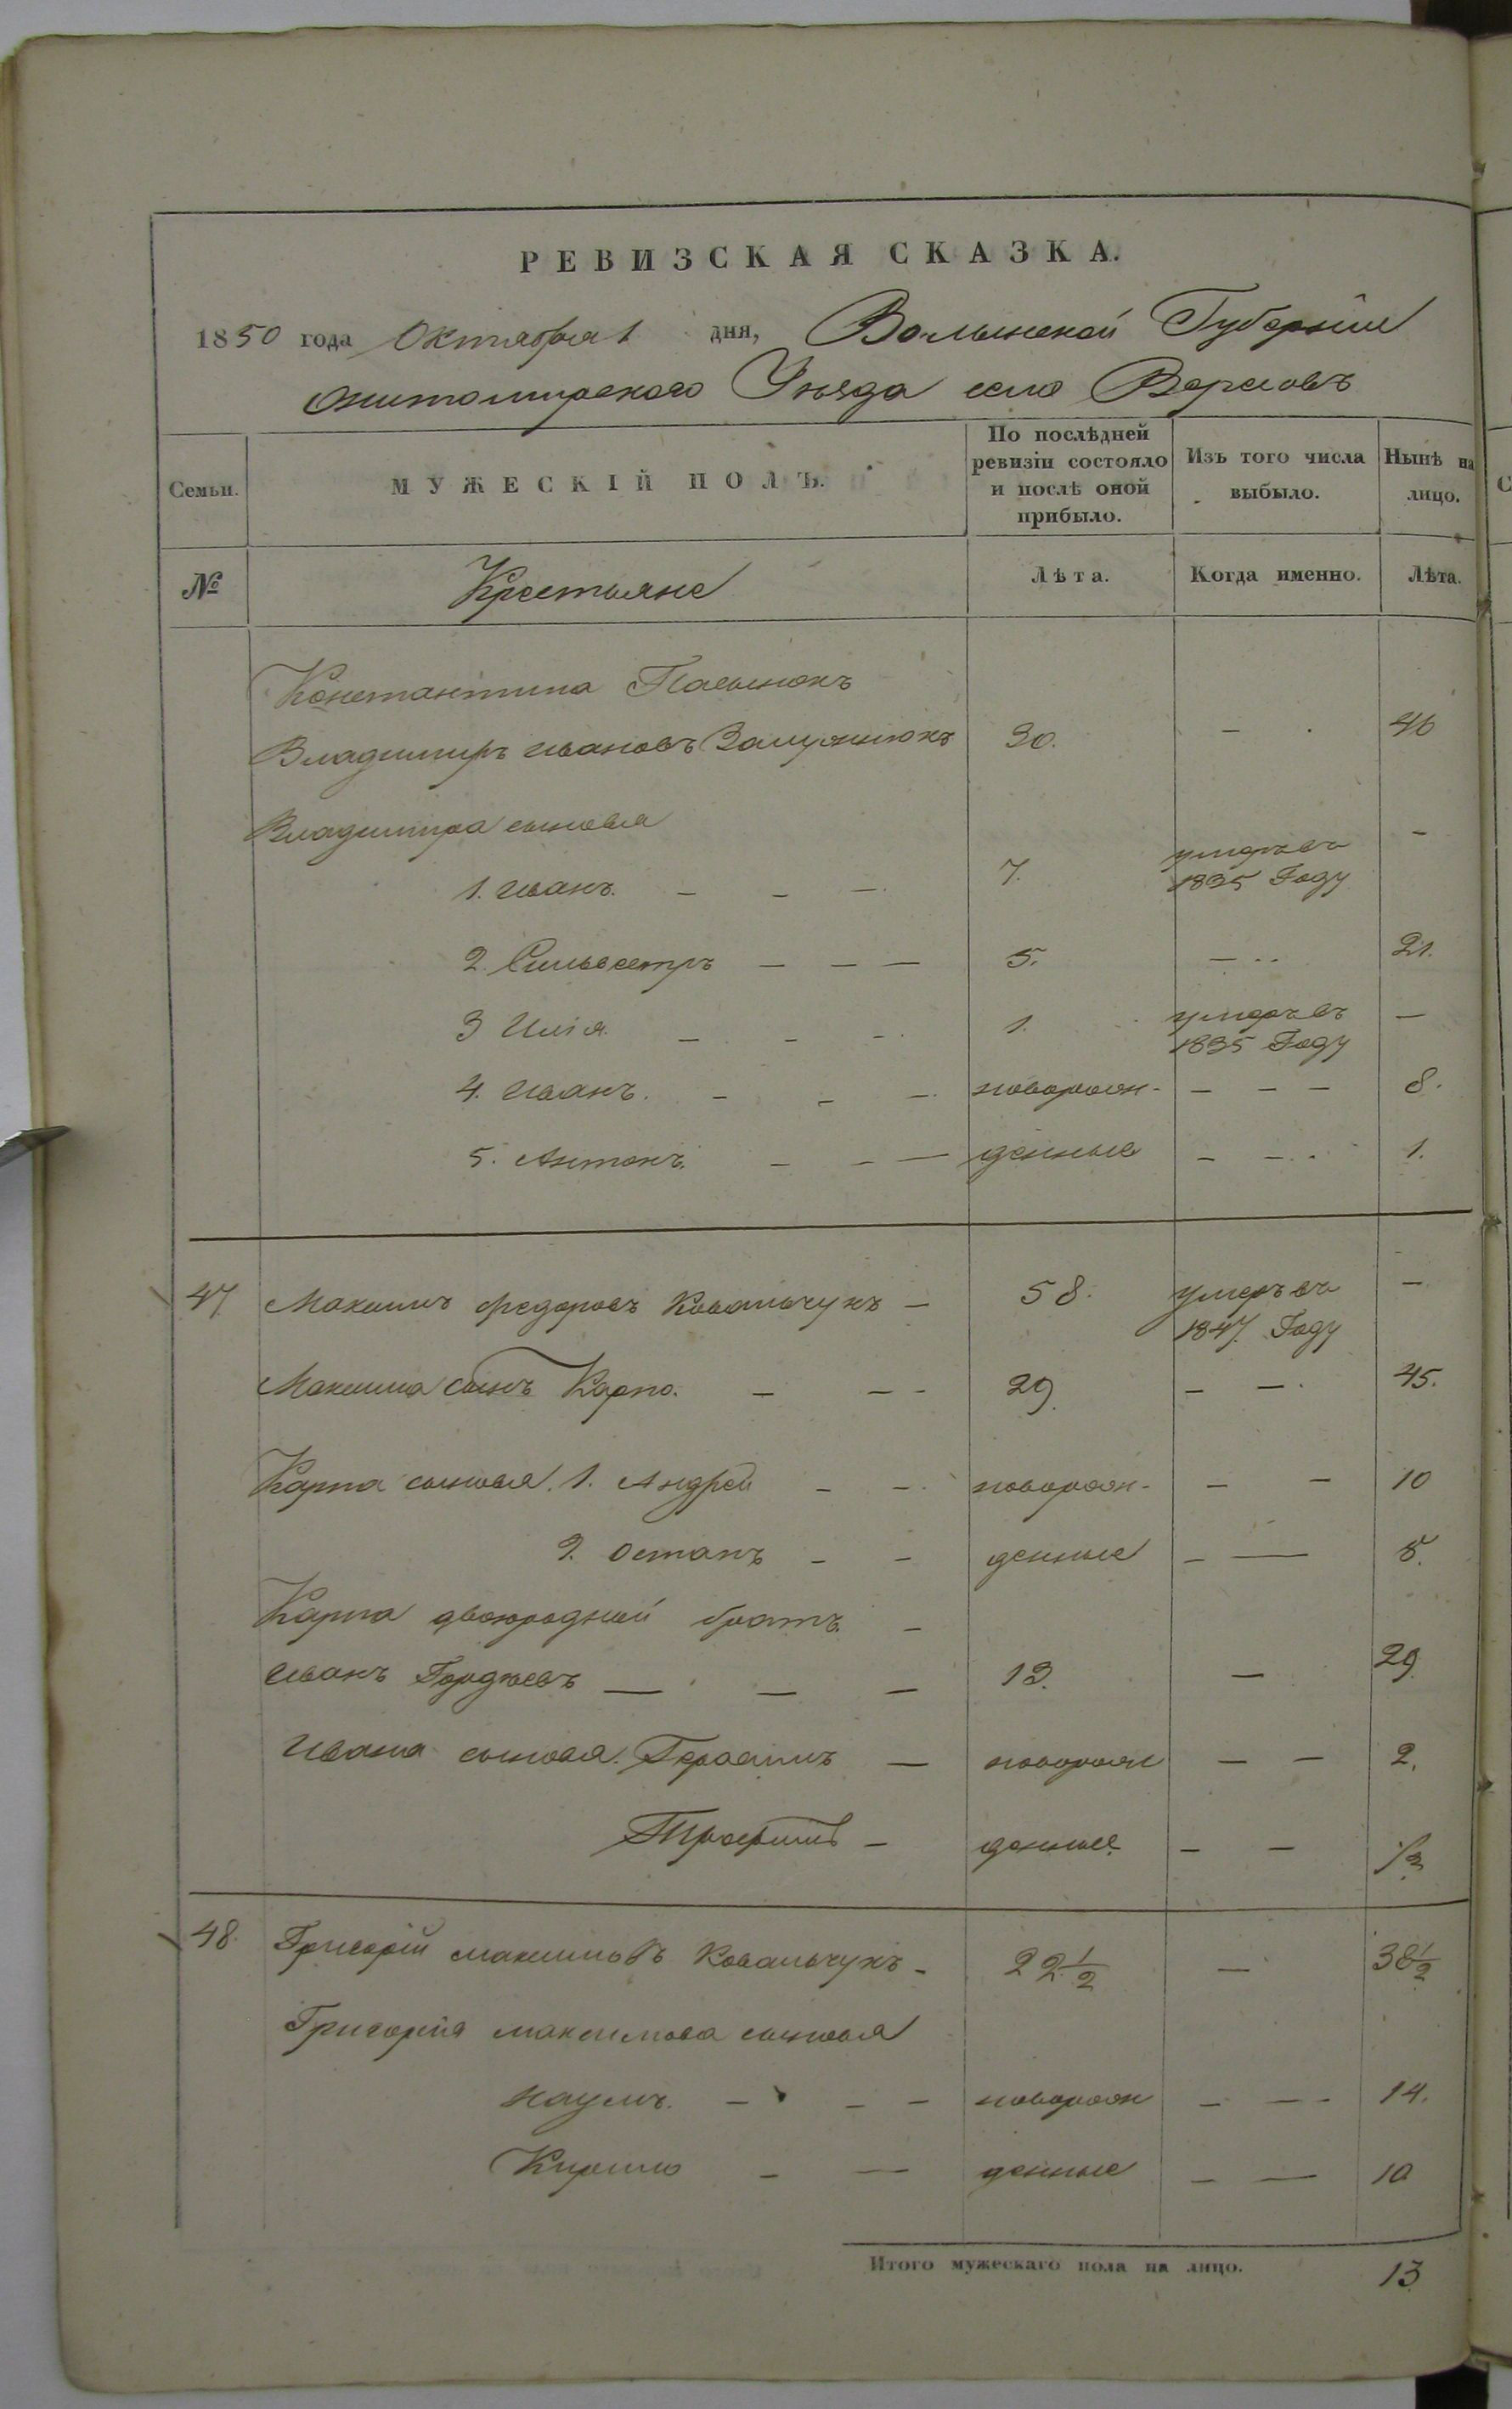 РЕВИЗСКАЯ СКАЗКА.
1850 года Октября 1 дня, Волынской Губернии
Житомирского Уѣзда село
Семьи. МУЖЕСКІЙ ПОЛЪ. По послѣдней ревизіи состояло и послѣ оной прибыло. Изъ того числа выбыло. Нынѣ на лицо.
№ Крестьяне Лѣта. Когда именно. Лѣта.
Константина Пасынокъ
Владимиръ Ивановъ 30. — 46
Владимира сыновья
1. Иванъ. — — — 7. умеръ въ 1835 Году —
2. Сильвестръ — — — 5. — 21.
3 Илія. — — — 1. умеръ въ 1835 Году —
4. Иванъ. — — — новорож- — — — 8.
5. Антонъ. — — — денные — — 1.
47 Максимъ Федоровъ Ковальчукъ — 58. умеръ въ 1847. Году —
Максима сынъ Карпо. — — - 29. — — 45.
Карпа сыновья. 1. Андрей — — новорож- — — 10
2. Остапъ — — денные — — 8.
Карпа двоюродный братъ —
Иванъ Гордѣевъ — — — 13. — 29.
Ивана сыновья. Герасимъ — новорож — — 2.
Трофимъ — денные. — — 1/2
48. Григорій Максимовъ Ковальчукъ — 22 1/2 — 38 1/2
Григорія Максимова сыновья
Наумъ. — — — новорож — — - 14.
Кирило — — денные — — 10
Итого мужескаго пола на лицо. 13